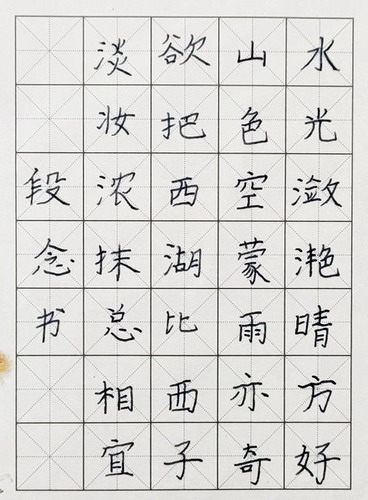 水光潋滟晴方好
山色空蒙雨亦奇
欲把西湖比西子
淡妆浓抹总相宜
段念书